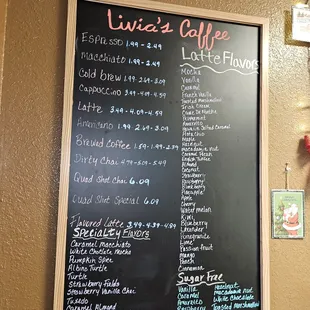 Livia's Coffee
Espresso 1.99 - 2.49
Macchiato 1.99 - 2.49
Cold brew 1.99 - 2.69 - 3.09
Cappuccino 3.49 - 4.09 - 4.59
Latte 3.49 - 4.09 - 4.59
Americano 1.99 - 2.69 - 3.09
Brewed Coffee 1.59 - 1.99 - 2.99
Dirty Chai 4.79 - 5.09 - 5.49
Quad Shot Chai 6.09
Quad Shot Special 6.09
Flavored Latte 3.99 - 4.39 - 4.89
Specialty Flavors
Caramel Macchiato
White Chocolate Mocha
Pumpkin Spice
Albino Turtle
Turtle
Strawberry Fields
Strawberry Vanilla Chai
Tuxedo
Caramel Almond
Latte Flavors
Mocha
Vanilla
Caramel
French Vanilla
Toasted Marshmallow
Irish Cream
Creme De Menthe
Peppermint
Amaretto
Salted Caramel
Pistachio
Maple
Hazelnut
Macadamia Nut
Caramel Pecan
English Toffee
Almond
Coconut
Strawberry
Raspberry
Blueberry
Pineapple
Apple
Cherry
Watermelon
Kiwi
Blueberry
Lavender
Pomegranate
Lime
Passion fruit
Mango
Peach
Cinnamon
Sugar Free
Vanilla
Caramel
Amaretto
Raspberry
Hazelnut
Macadamia nut
White Chocolate
Toasted Marshmallow